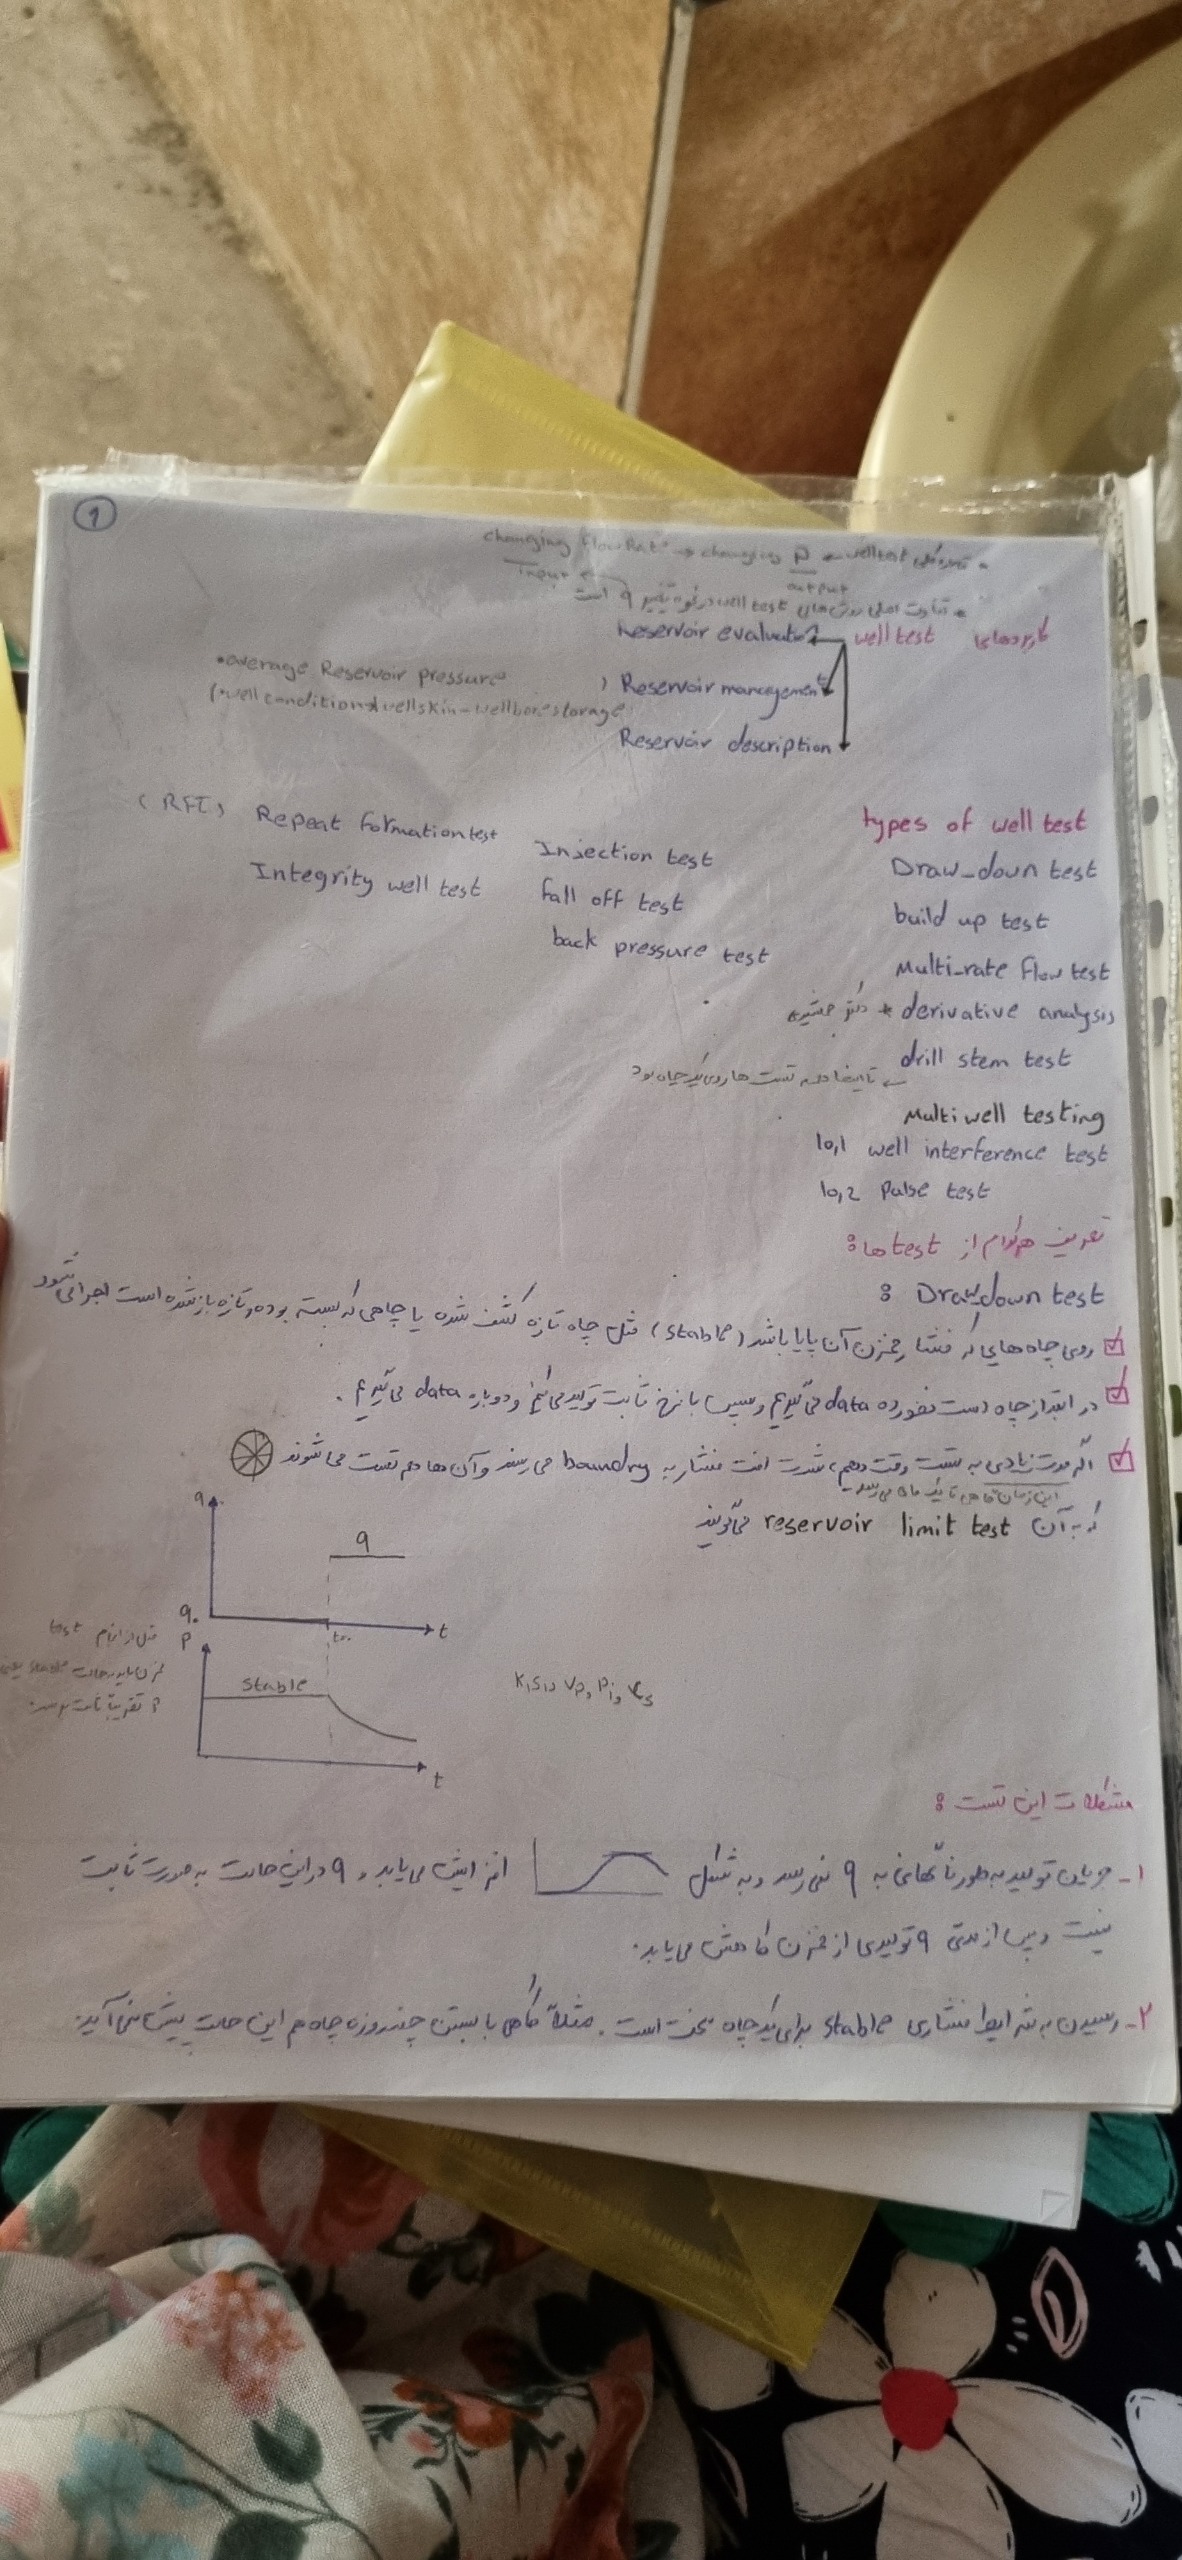 1
changing flow Rate → changing P ← well test تعریف کلی *
input output
* تفاوت اصلی روش های well test در نحوه تغییر q است
کاربردهای well test
Reservoir evaluation
Reservoir management (
• average Reservoir pressure
(• well condition → well skin - wellbore storage
Reservoir description
types of well test
Draw-down test
build up test
Multi-rate flow test
derivative analysis *
drill stem test
← تا اینجا همه تست ها روی یک چاه بود
Multi well testing
10,1 well interference test
10,2 Pulse test
Injection test
fall off test
back pressure test
(RFT) Repeat formation test
Integrity well test
تعریف هرکدام از test ها:
Draw-down test :
روی چاه هایی که فشار مخزن آن پایا باشد (stable) مثل چاه تازه کشف شده یا چاهی که بسته بوده و تازه باز شده است اجرا می شود
در ابتدا از چاه دست نخورده data می گیریم و سپس با نرخ ثابت تولید می کنیم و دوباره data می گیریم.
اگر مدت زیادی به تست وقت دهیم، شدت افت فشار به boundry می رسد و آن ها هم تست می شوند
این زمان گاهی تا یک ماه می رسد
که به آن reservoir limit test می گویند
q
q
q.
t
P
stable
t
قبل از انجام test
مخزن باید به حالت stable یعنی
P تقریبا ثابت برسد.
مشکلات این تست :
۱- جریان تولید به طور ناگهانی به q نمی رسد و به شکل افزایش می یابد و q در این حالت به صورت ثابت
نیست و پس از مدتی q تولیدی از مخزن کاهش می یابد.
۲- رسیدن به شرایط فشاری stable برای یک چاه سخت است. مثلاً گاهی با بستن چند روزه چاه هم این حالت پیش نمی آید.